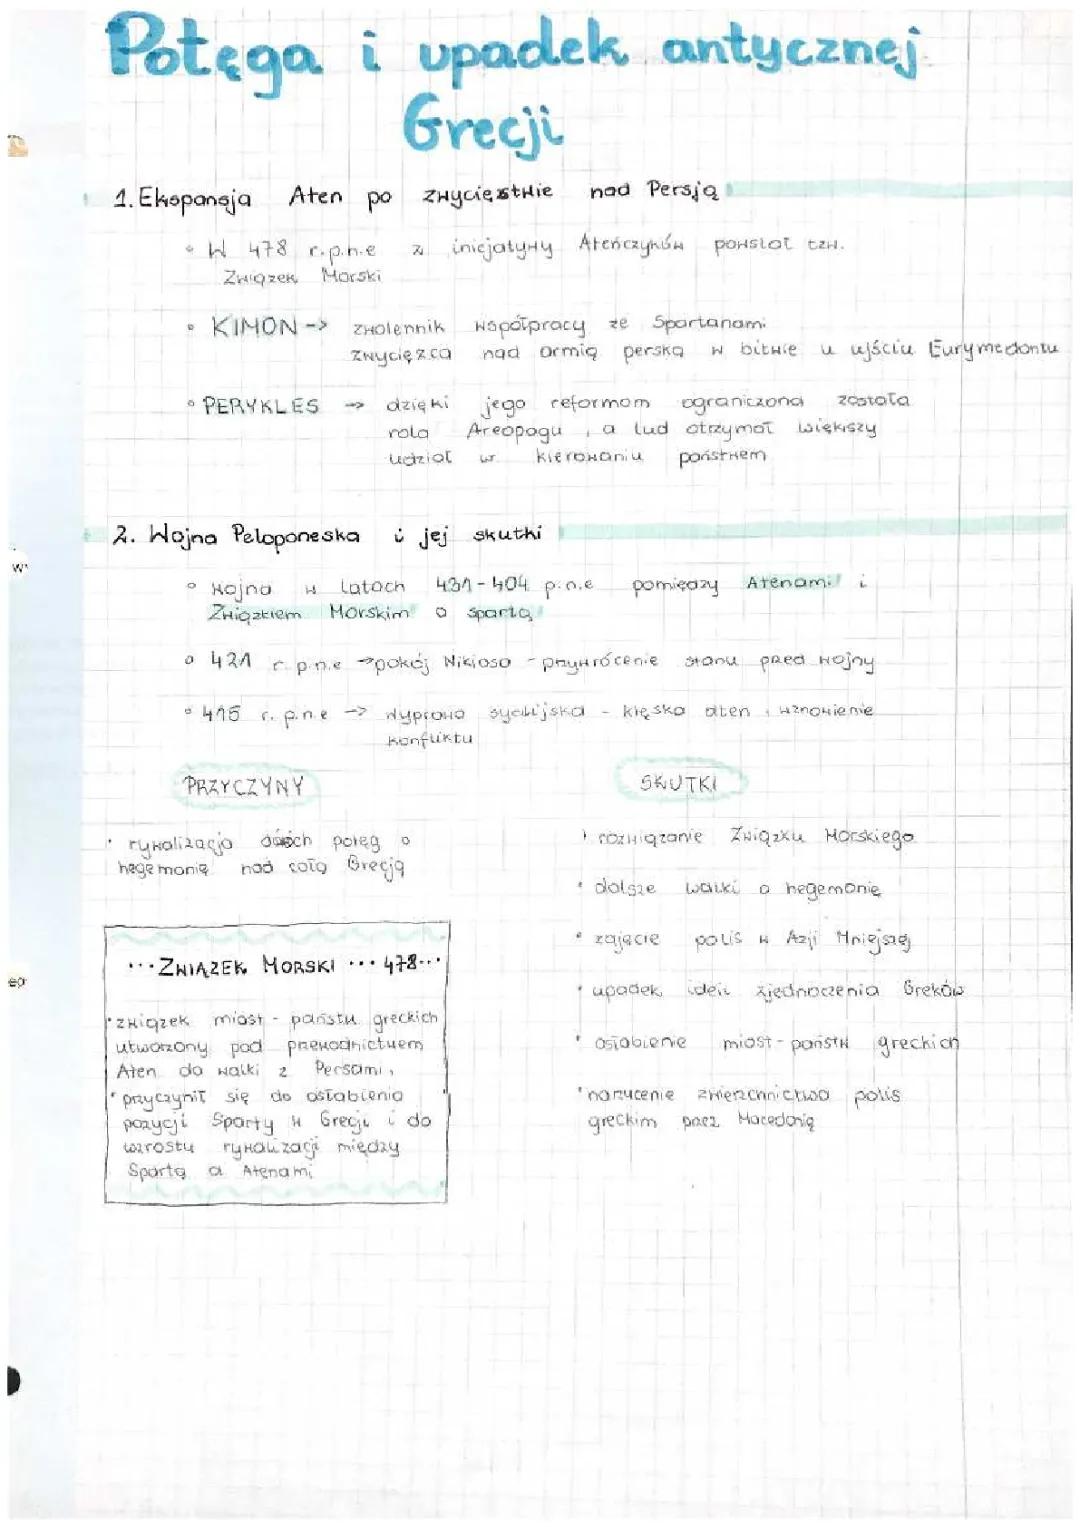 Potęga i upadek antycznej
Grecji
1. Ekspansja Aten po zwycięstwie nad Persją
W 478 r.p.n.e z inicjatywy Ateńczyków powstał tzw.
Związek Morski
KIMON -> zwolennik współpracy ze Spartanami
zwycięzca nad armią perską w bitwie u ujściu Eurymedontu
PERYKLES -> dzięki jego reformom ograniczona została
rola Areopagu, a lud otrzymał większy
udział w kierowaniu państwem
2. Wojna Peloponeska i jej skutki
wojna w latach 431-404 p.n.e pomiędzy Atenami i
Związkiem Morskim a Spartą
421 r. p.n.e -> pokój Nikiasa - przywrócenie stanu przed wojny
415 r. p.n.e -> wyprawa sycylijska - klęska aten, wznowienie
konfliktu
PRZYCZYNY
rywalizacja dwóch potęg o
hegemonię nad całą Grecją
···ZWIĄZEK MORSKI ··· 478···
związek miast - państw greckich
utworzony pod przewodnictwem
Aten do walki z Persami,
przyczynił się do osłabienia
pozycji Sparty w Grecji i do
wzrostu rywalizacji między
Spartą a Atenami
SKUTKI
rozwiązanie Związku Morskiego
dalsze walki o hegemonię
zajęcie polis w Azji Mniejszej
upadek ideii zjednoczenia Greków
osłabienie miast-państw greckich
narzucenie zwierzchnictwa polis
greckim przez Macedonię